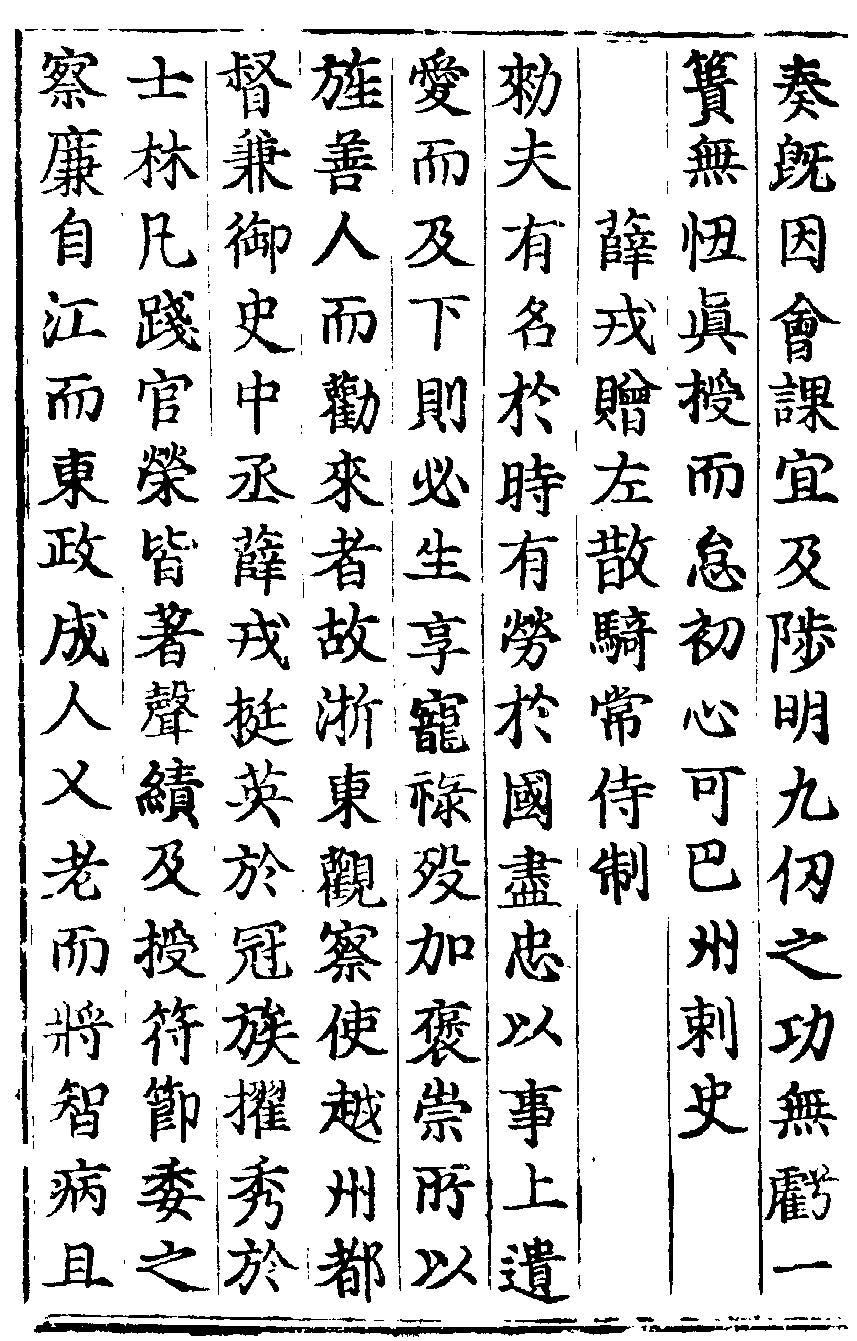 奏旣因會課宜及陟明九仞之功無虧一
簣無忸眞授而怠初心可巴州刺史
薛戎贈左散騎常侍制
勑夫有名於時有勞於國盡忠以事上遺
愛而及下則必生享寵祿殁加褒崇所以
旌善人而勸來者故浙東觀察使越州都
督兼御史中丞薛戎挺英於冠族擢秀於
士林凡踐官榮皆著聲績及授符節委之
察廉自江而東政成人乂老而將智病且